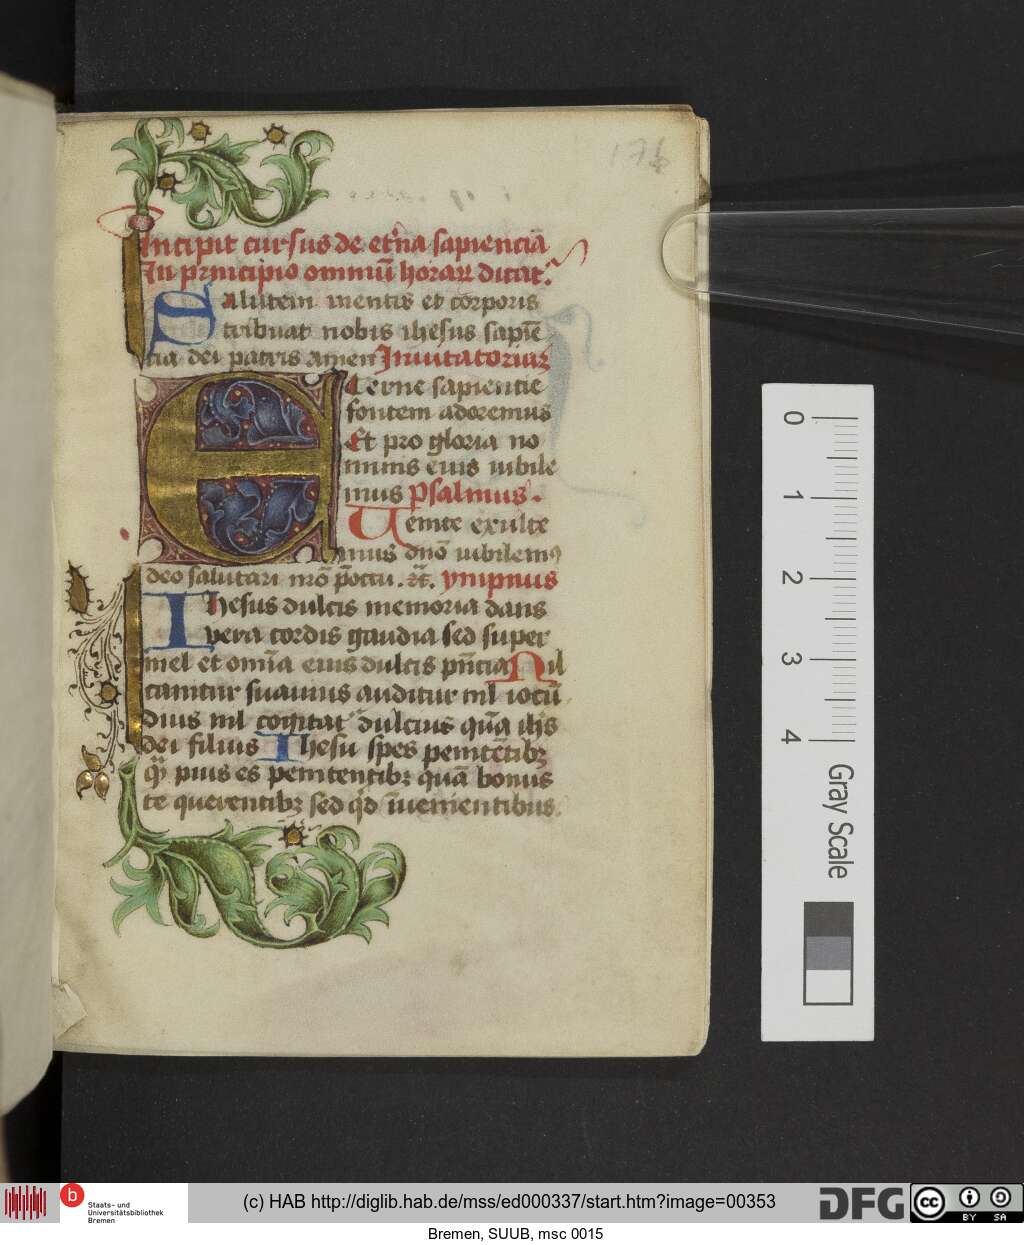 176
Incipit cursus de et̄na sapiencia
In principio omniū horaꝝ dicat̄
Salutem mentis et corporis
tribuat nobis ihesus sapiē
tia dei patris amen Inuitatoriūꝫ
Eterne sapientie
fontem adoremus
Et pro gloria no
minis eius iubile
mus Psalmus.
Uenite exulte
mus dn̄o iubilemꝯ
deo salutari nr̄o
ympnus
Ihesus dulcis memoria dans
vera cordis gaudia sed super
mel et om̄ia eius dulcis pn̄cia Nil
canitur suauius auditur nil iocū
dius nil cogitat̄ dulcius quā ihs̄
dei filius Ihesu spes penitētibꝫ
qͥ pius es penitentibꝫ quā bonus
te querentibꝫ sed qͥd īuenientibus.
0
1
2
3
4
Gray Scale
b
Staats- und
Universitätsbibliothek
Bremen
(c) HAB http://diglib.hab.de/mss/ed000337/start.htm?image=00353
DFG
cc
BY SA
Bremen, SUUB, msc 0015